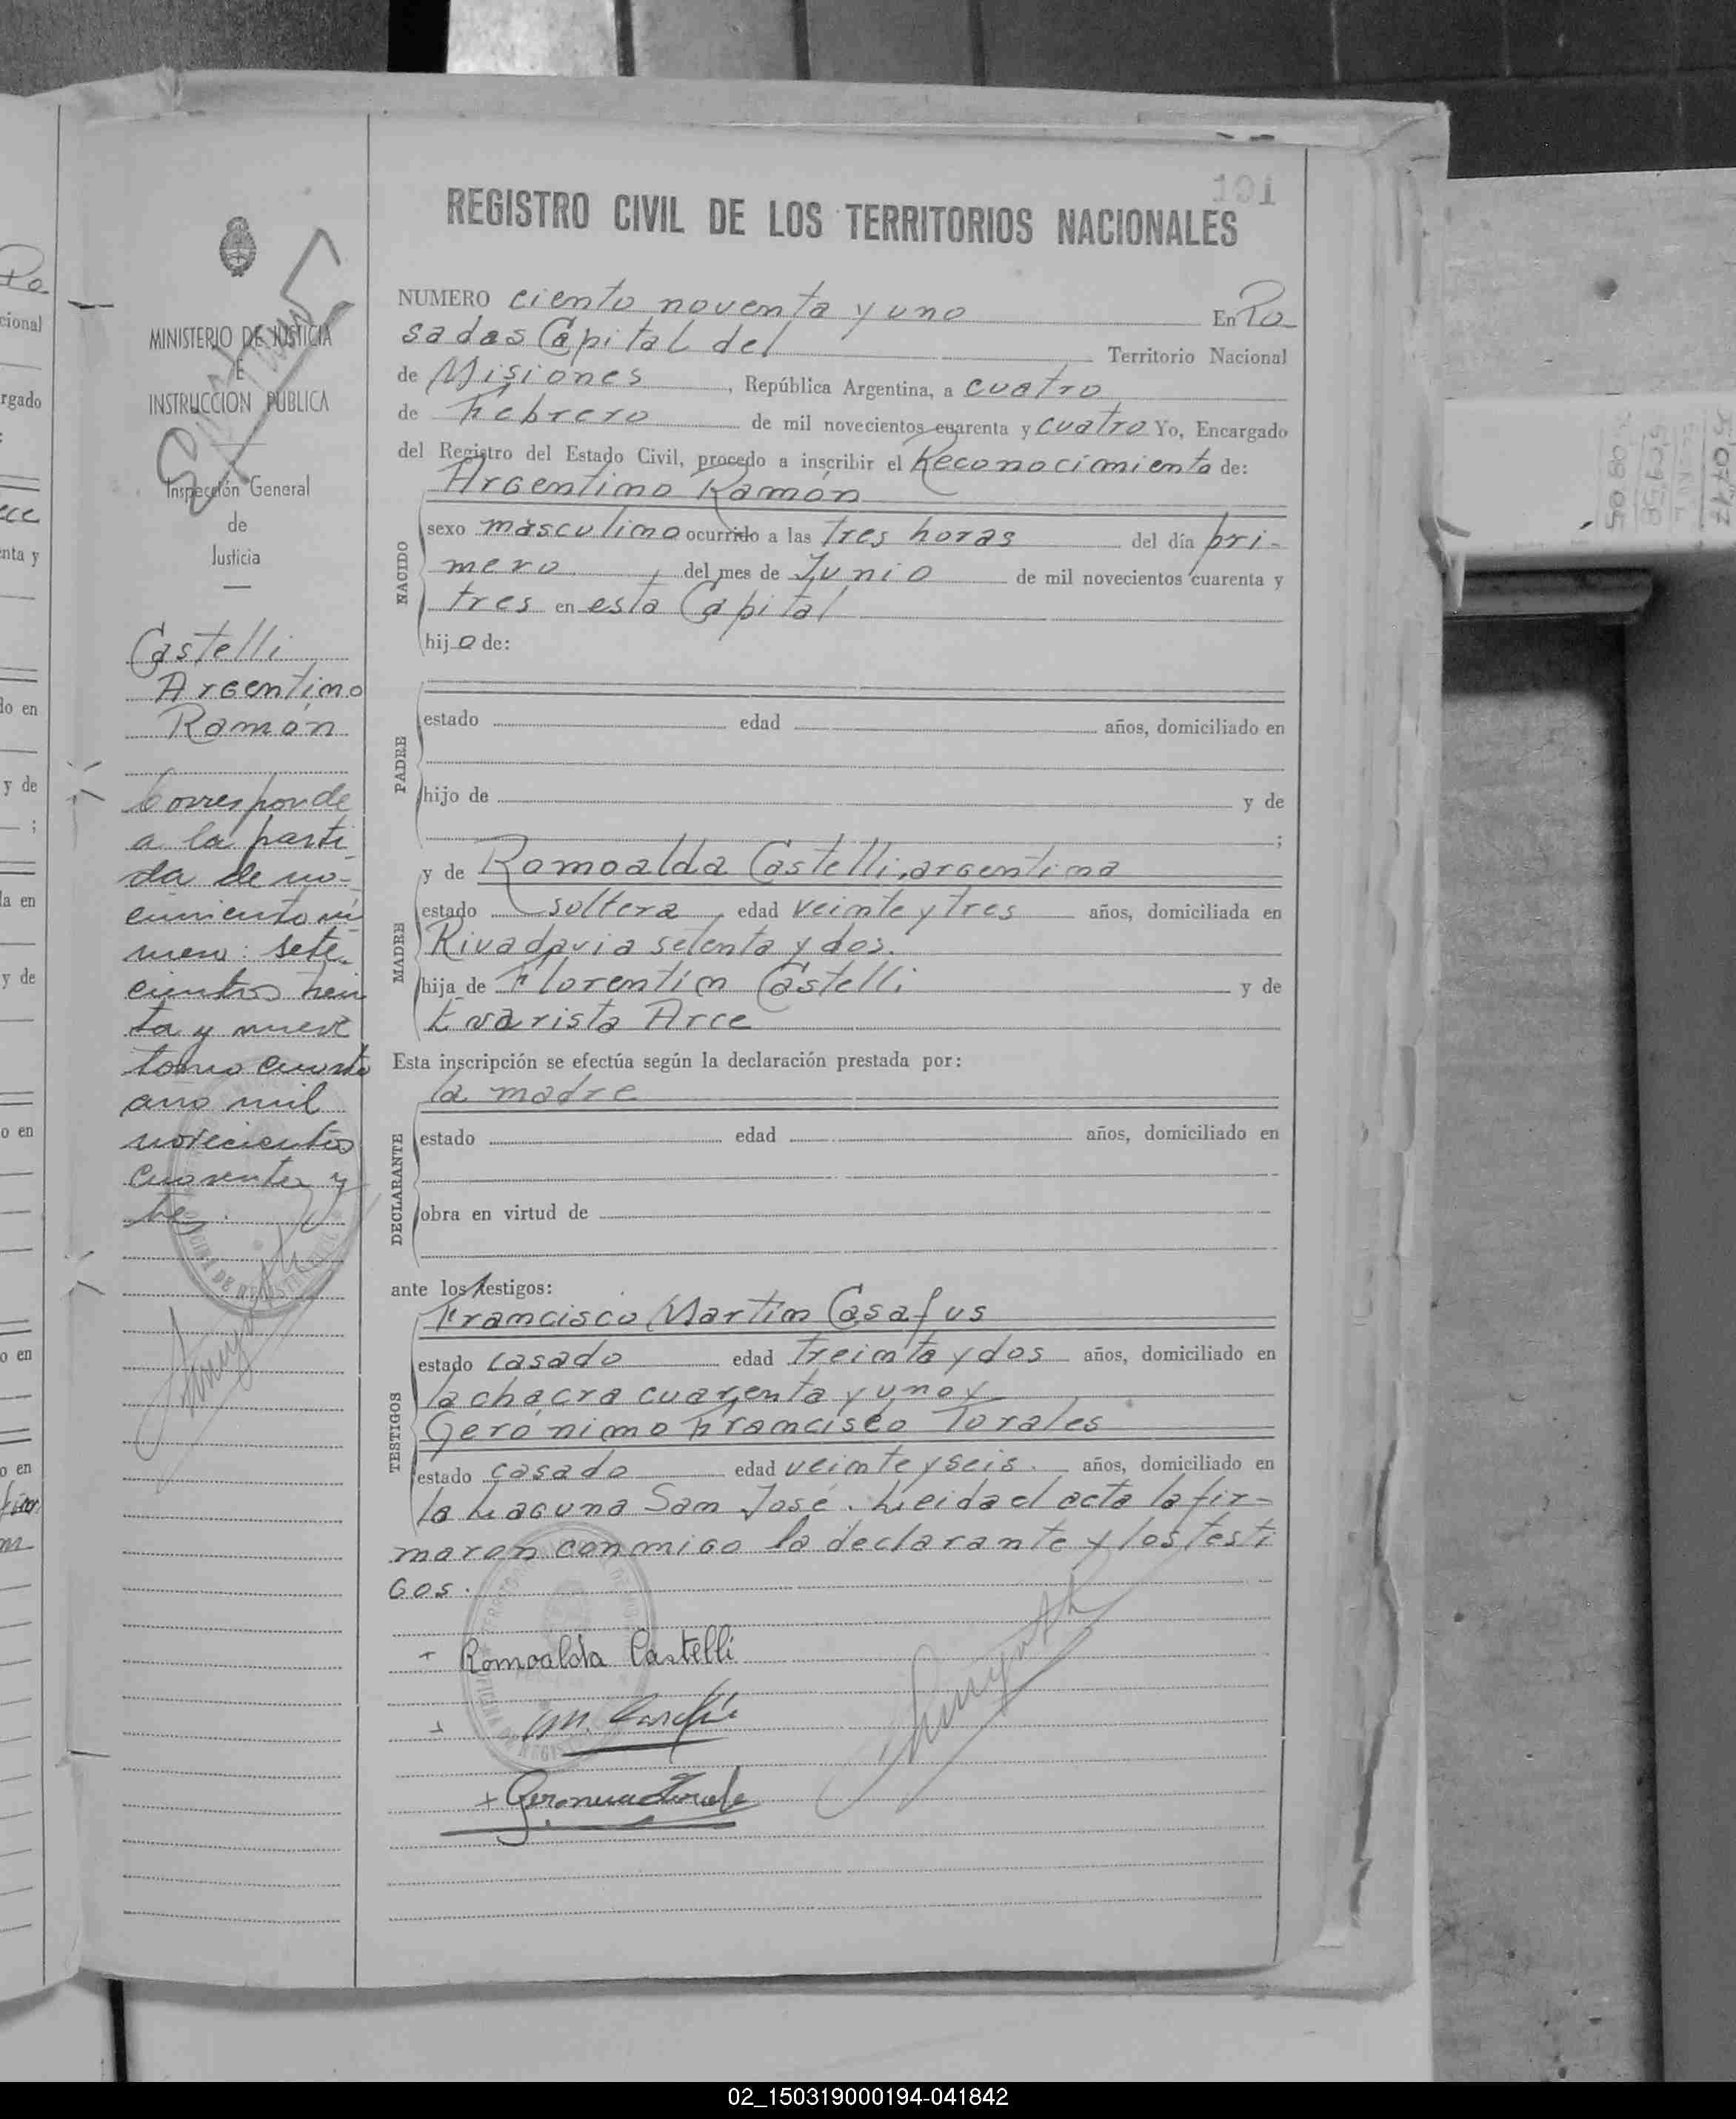 191
REGISTRO CIVIL DE LOS TERRITORIOS NACIONALES
NUMERO ciento noventa y uno En Po
sadas Capital del Territorio Nacional
de Misiones, República Argentina, a cuatro
de Febrero de mil novecientos cuarenta y cuatro Yo, Encargado
del Registro del Estado Civil, procedo a inscribir el Reconocimiento de:
Argentino Ramón
NACIDO
sexo masculino ocurrido a las tres horas del día pri-
mero del mes de Junio de mil novecientos cuarenta y
tres en esta Capital
hijo de:
PADRE
estado edad años, domiciliado en
hijo de y de
;
MADRE
y de Romoalda Castelli, argentina
estado soltera, edad veinte y tres años, domiciliada en
Rivadavia setenta y dos.
hija de Florentín Castelli y de
Evarista Arce
Esta inscripción se efectúa según la declaración prestada por:
la madre
DECLARANTE
estado edad años, domiciliado en
obra en virtud de
ante los testigos:
TESTIGOS
Francisco Martín Casafus
estado casado edad treinta y dos años, domiciliado en
la chacra cuarenta y uno y
Gerónimo Francisco Torales
estado casado edad veinte y seis. años, domiciliado en
la Laguna San José. Leida el acta la fir-
maron conmigo la declarante y los testi
gos.
+ Romoalda Castelli
MINISTERIO DE JUSTICIA
E
INSTRUCCION PUBLICA
Inspección General
de
Justicia
Castelli
Argentino
Ramón
Corresponde
a la parti
da de na-
cimiento nú
mero: sete-
cientos trein
ta y nueve
tomo cuarto
año mil
novecientos
cuarenta y
tres.
Po
cional
rgado
enta y
do en
y de
;
la en
y de
o en
o en
o en
02_150319000194-041842